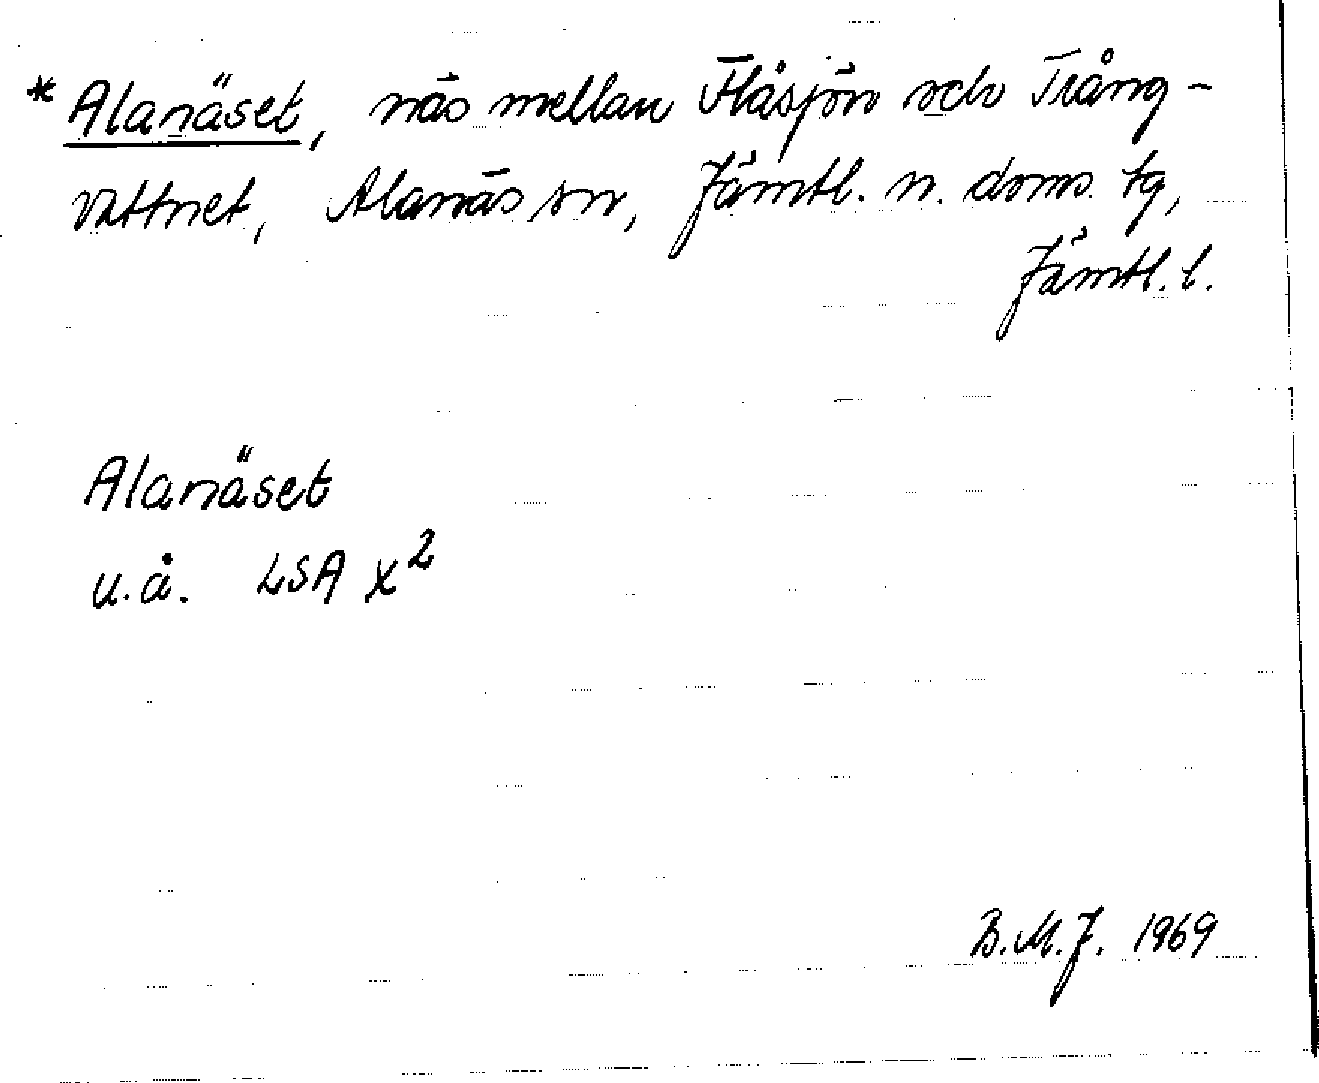 * Alanäset, näs mellan Flåsjön och Trång-
vattnet, Alanäs sn, Jämtl. n. doms. tg,
Jämtl. l.
Alanäset
u.å. LSA X²
B.M.J. 1969